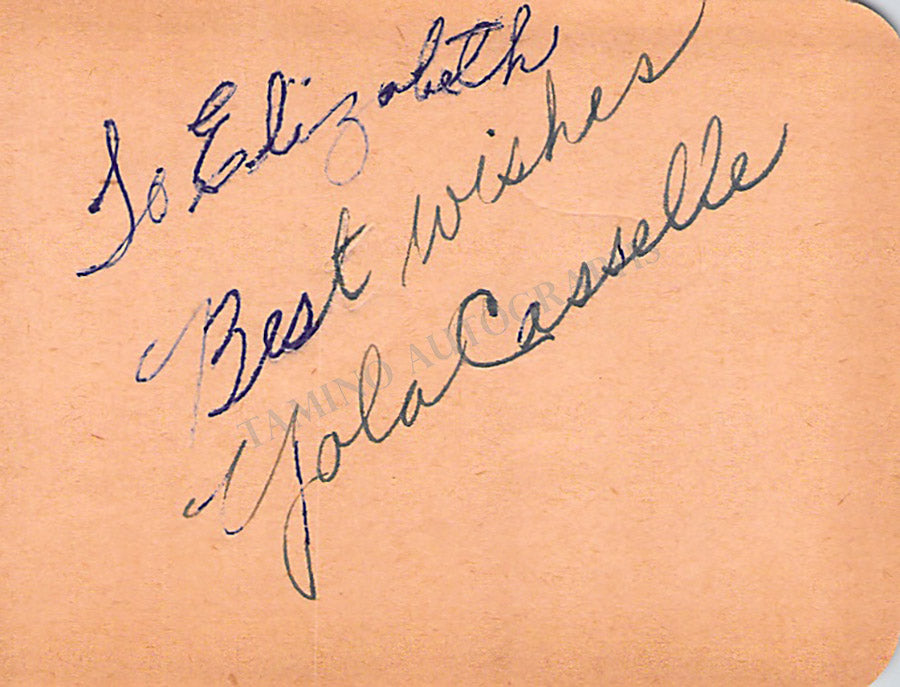 To Elizabeth
Best wishes
Yola Casselle
TAMINO AUTOGRAPHS